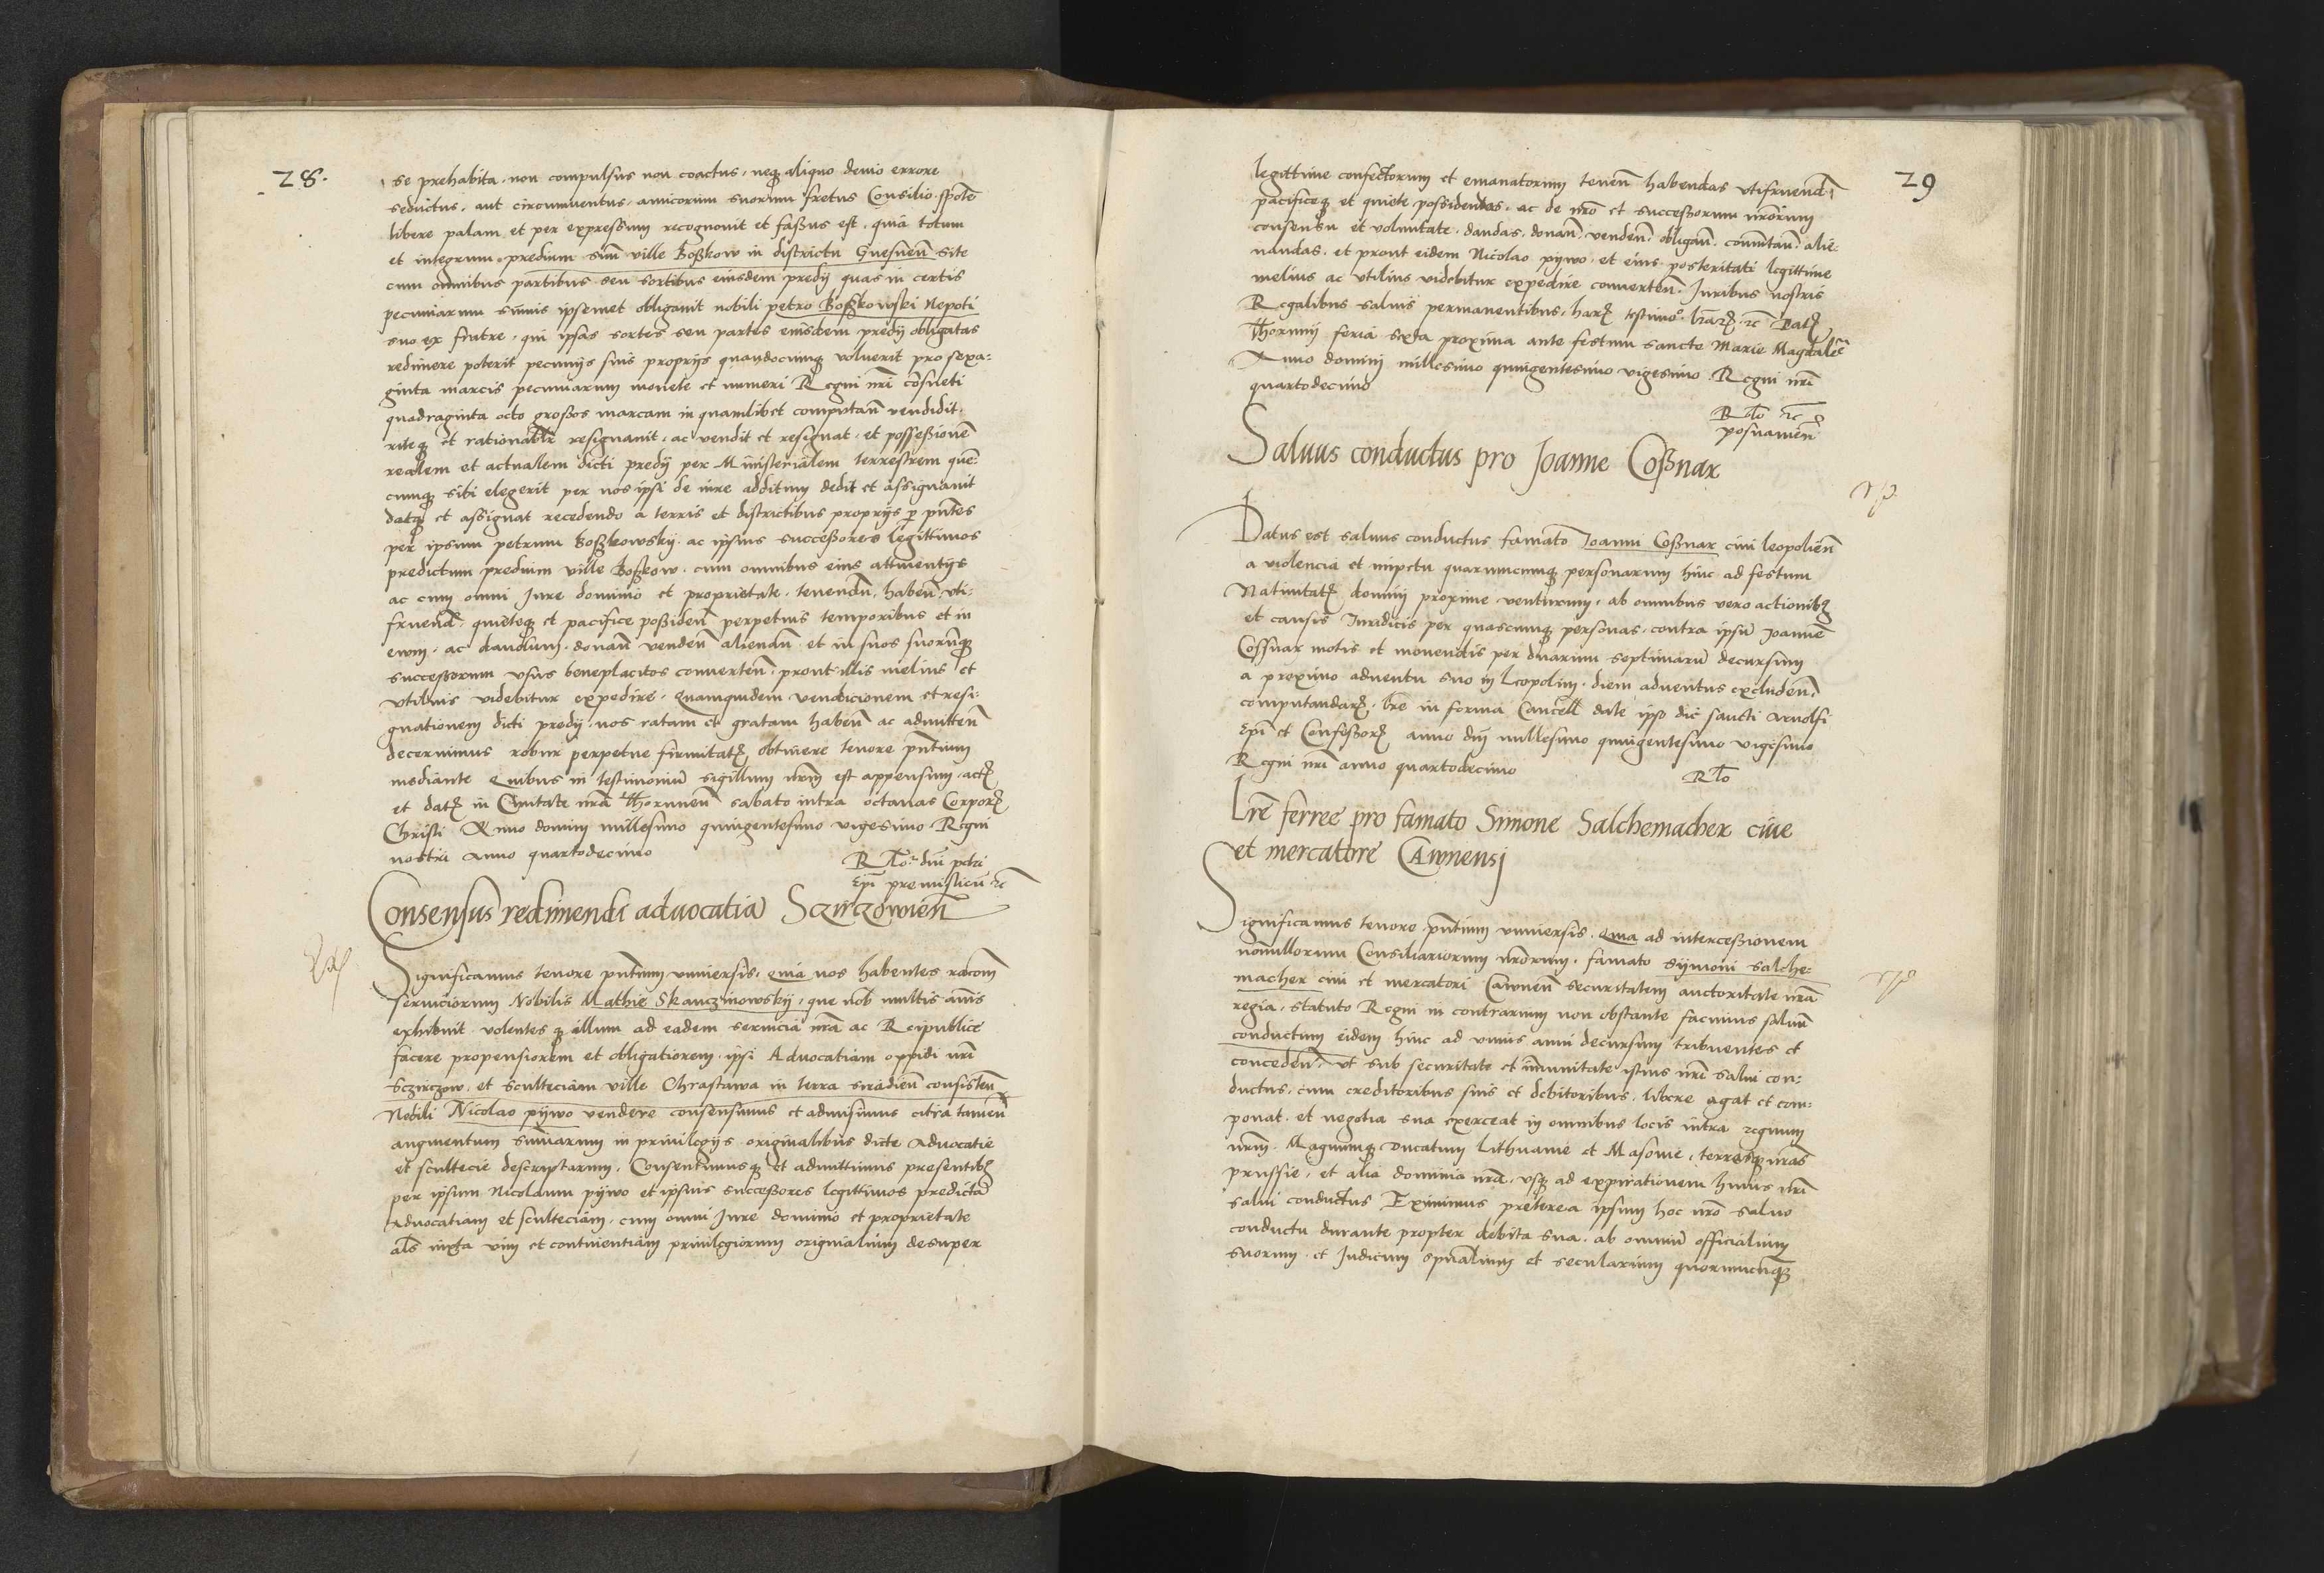 28.
se prehabita, non compulsus non coactus, neq₃ aliquo deuio errore
seductus, aut circumuentus, amicorum suorum fretus Consilio, spōte
libere palam et per expressum recognouit et faßus est, quia totum
et integrum predium suū ville Boßkow in districtu Gnesneñ site
cum omnibus partibus seu sortibus eiusdem predij quas in certis
pecuniarum sūmis ipsemet obligauit nobili petro Boßkowski Nepoti
suo ex fratre, qui ipsas sortes seu partes eiusdem predij obligatas
redimere poterit pecunijs suis proprijs quandocumq₃ voluerit pro sexa:
ginta marcis pecuniarum monete et numeri Regni nr̄i cōsueti
quadraginta octo großos marcam in quamlibet computañ vendidit,
riteq₃ et rationabl̄r resignauit, ac vendit et resignat, et possessionē
realem et actualem dicti predij per Ministerialem terrestrem quē:
cumq₃ sibi elegerit per nos ipsi de iure additum dedit et assignauit
datq₃ et assignat recedendo a terris et districtibus proprijs p pn̄tes
per ipsum petrum Boßkowskij ac ipsius successores legittimos
predictum predium ville Boßkow, cum omnibus eius attinentijs
ac cum omni Jure dominio et proprietate, tenendū, habeñ vti:
fruend̄, quieteq₃ et pacifice poßideñ perpetuis temporibus et in
ewm, ac dandum, donañ vendeñ alienañ et in suos suorūq₃
successorum vsus beneplacitos conuerteñ, prout illis melius et
vtilius videbitur expedire, Quamquidem vendicionem et resi:
gnationem dicti predij, nos ratam et gratam habeñ ac admitteñ
decernimus robur perpetue firmitatꝫ obtinere tenore pn̄tium
mediante Quibus in testimoniū sigillum nr̄m est appensum, actꝫ
et datꝫ in Ciuitate nr̄a Thorunneñ sabato intra octauas Corporꝫ
Christi Anno domini millesimo quingentesimo vigesimo Regni
nostri anno quartodecimo
R̄lo: dn̄i petri
Ep̄i premislieñ ꝛc
Consensus redimendi aduocatia Sczirczowieñ
Significamus tenore pn̄tium vniuersis, quia nos habentes racōem
seruiciorum Nobilis Mathie Skanczinowskij, que nob̄ multis añis
exhibuit, volentes q₃ illum ad eadem seruicia nr̄a ac Reipublice
facere propensiorem et obligatiorem, ipsi Aduocatiam oppidi nr̄i
Sczirczow, et sculteciam ville Chrastawa in terra siradieñ consisteñ
Nobili Nicolao pijwo vendere consensimus et admisimus citra tamen
augmentum sūmarum in priuilegijs originalibus dicte Aduocatie
et scultecie descriptarum, Consentimusq₃ et admittimus presentibꝫ
per ipsum Nicolaum pijwo et ipsius successores legittimos predictā
Aduocatiam et sculteciam, cum omni Jure dominio et proprietate
al̄s iuxta vim et continentiam priuilegiorum originalium desuper
29
legittime confectorum et emanatorum teneñ habendas vtifruend̄
pacificeq₃ et quiete possidendas, ac de nr̄o et successorum nr̄orum
consensu et voluntate, dandas, donañ, vendeñ, obligañ, com̄utañ, alie:
nandas, et prout eidem Nicolao pijwo et eius posteritati legittime
melius ac vtilius videbitur expedire conuerteñ, Juribus nostris
Regalibus saluis permanentibus, harꝫ testimo° lr̄arꝫ ꝛc Datꝫ
Thorunij feria sexta proxima ante festum sancte Marie Magdalēe
Anno domini millesimo quingentesimo vigesimo Regni nr̄i
quartodecimo
R̄lo ꝛc
posnanieñ
Saluus conductus pro Joanne Coßnar
Datus est saluus conductus famato Joanni Coßnar ciui leopolieñ
a violencia et impetu quarumcumq₃ personarum hinc ad festum
Natiuitatꝫ domini proxime venturum, ab omnibus vero actionibꝫ
et causis Juridicis per quascumq₃ personas, contra ipsū Joannē
Cossnar motis et mouendis per duarum septimarū decursum
a proximo aduentu suo in Leopolim, diem aduentus excludeñ,
computandarꝫ, lr̄e in forma Cancell̄ date ipso die sancti Arnolfi
Ep̄i et Confeßorꝫ anno dn̄i millesimo quingentesimo vigesimo
Regni nr̄i anno quartodecimo
R̄lo
Lr̄e ferree pro famato Simone Salchemacher ciue
et mercatore Cawnensj
Significamus tenore pn̄tium vniuersis, Quia ad interceßionem
nōnullorum Consiliariorum nr̄orum, famato sijmoni salche:
macher ciui et mercatori Cawneñ securitatem auctoritate nr̄a
regia, statuto Regni in contrarium non obstante facimus saluū
conductum eidem hinc ad vnius anni decursum tribuentes et
concedeñ, vt sub securitate et im̄unitate istius nr̄i salui con:
ductus, cum creditoribus suis et debitoribus, libere agat et com:
ponat, et negotia sua exerceat in omnibus locis intra regnum
nr̄m, Magnumq₃ Ducatum Lithuanie et Masouie, terrasq₃ nr̄as
prussie, et alia dominia nr̄a, vsq₃ ad expirationem huius nr̄i
salui conductus Eximimus preterea ipsum hoc nr̄o saluo
conductu durante propter debita sua, ab omniū officialium
suorum, et Judicum spūalium et secularium quorumcūq₃